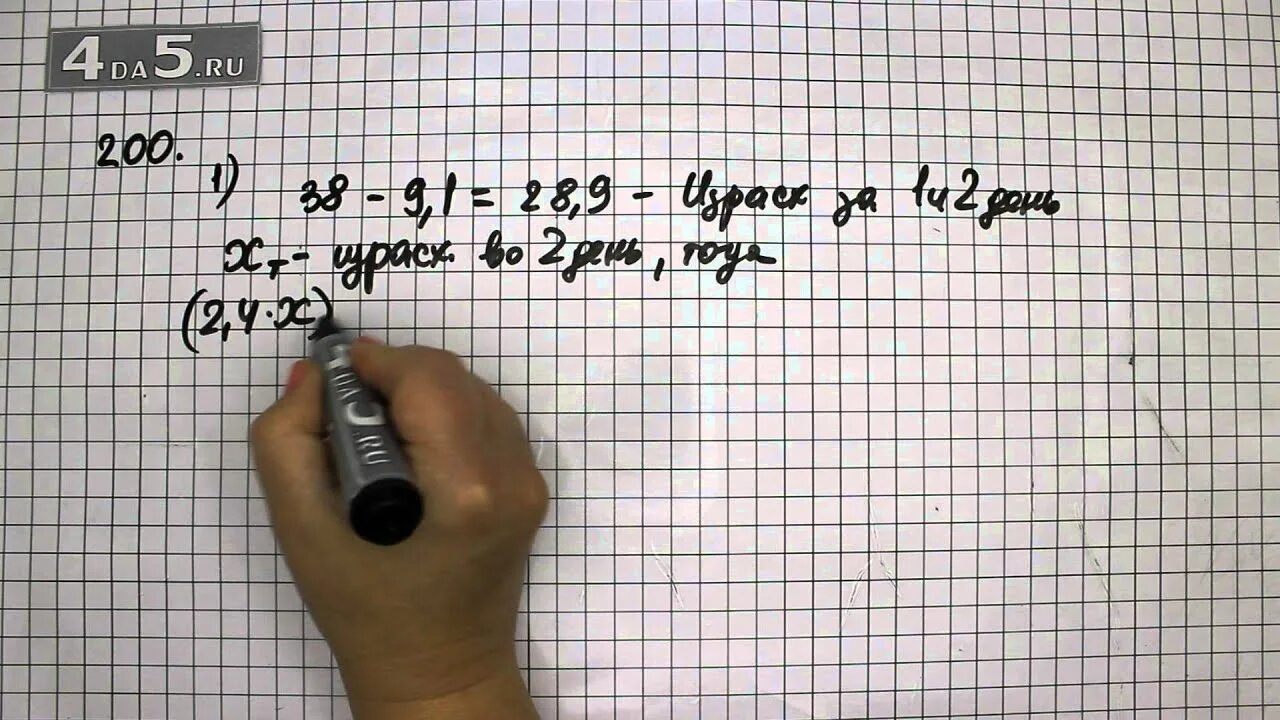 4DA5.RU
200.
1) 38 - 9,1 = 28,9 - Израсх за 1 и 2 день
x т - израсх. во 2 день, тогда
(2,4·x)
DA5.RU